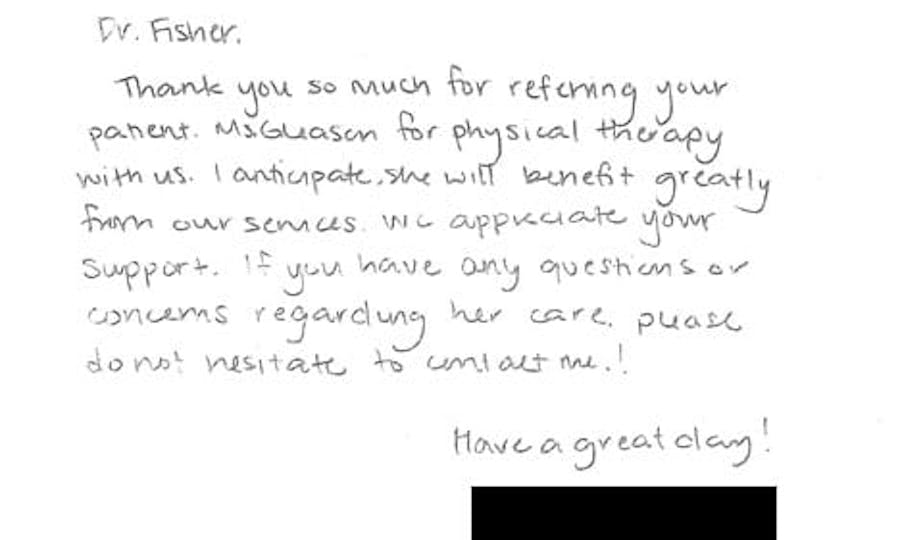 Dr. Fisher,
Thank you so much for referring your
patient, Ms. Gleason for physical therapy
with us. I anticipate she will benefit greatly
from our services. We appreciate your
support. If you have any questions or
concerns regarding her care, please
do not hesitate to contact me.!
Have a great day!